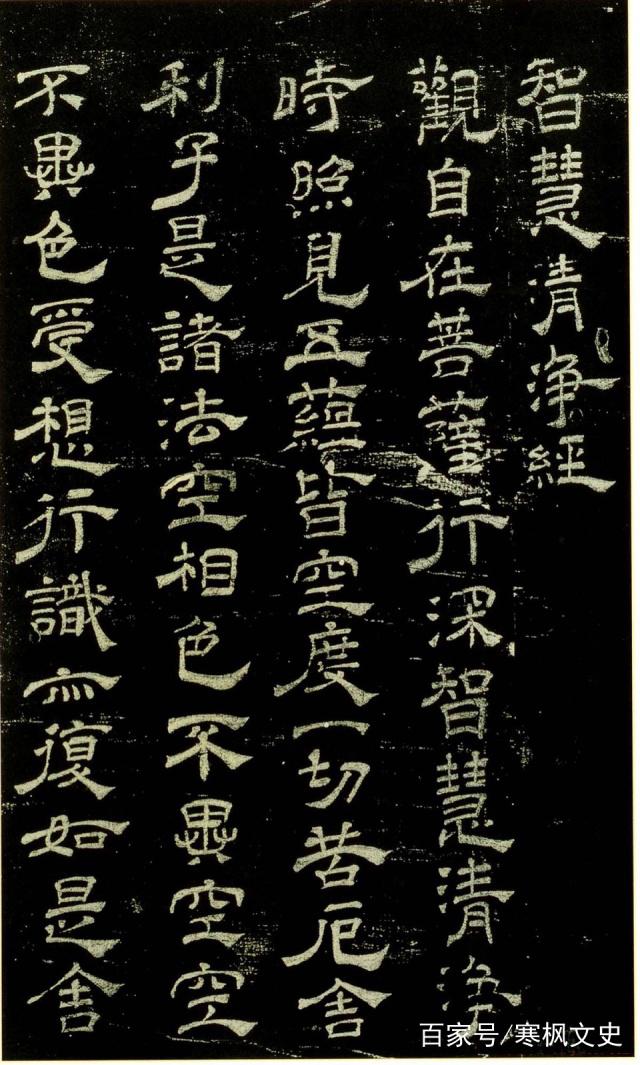 智慧清淨經
觀自在菩薩行深智慧清淨
時照見五蘊皆空度一切苦厄舍
利子是諸法空相色不異空空
不異色受想行識亦復如是舍
百家号/寒枫文史